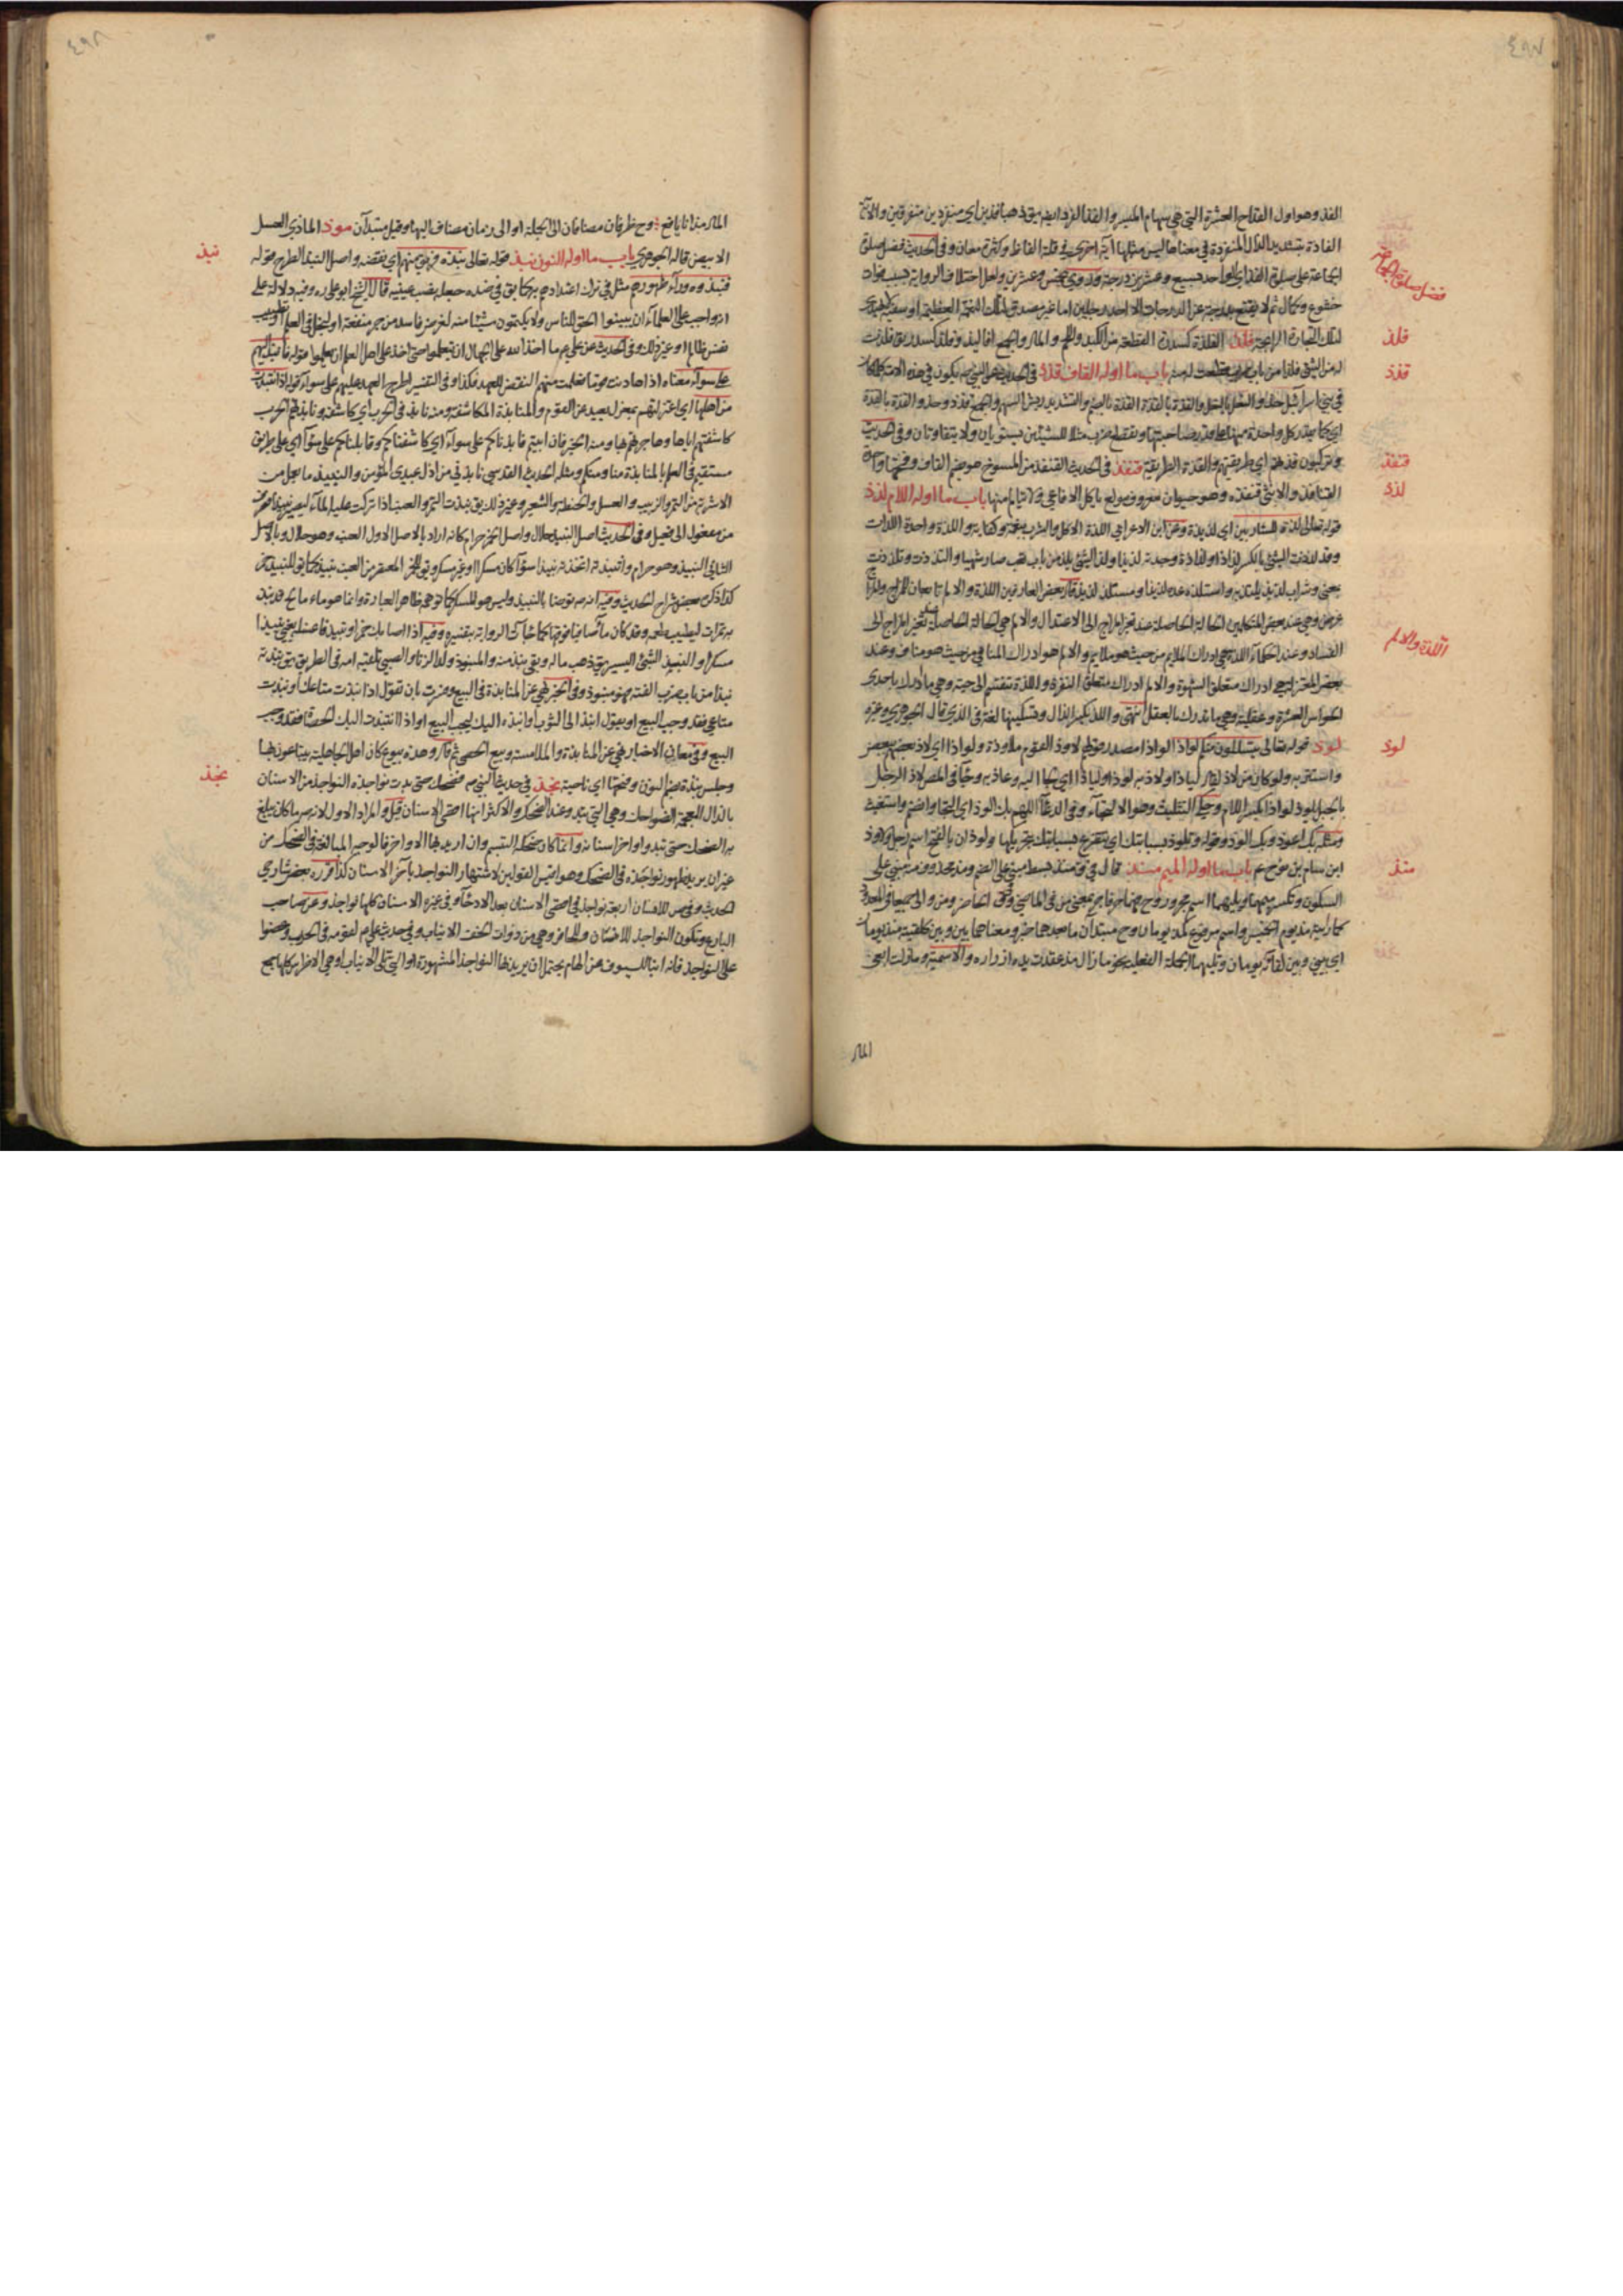 ٤٩٧
الفذ وهو اول القداح العشرة التي هي سهام الميسر والفذ الفرد ايضا يق ذهبا فذين اي منفردين متفرقين والآية
الفاذة بتشديد الذال المنفردة في معناها ليس مثلها آية اخرى في قلة الفاظ وكثرة معان وفي الحديث فضل صلوة
الجماعة على صلوة الفذ اي الواحد بسبع وعشرين درجة وروي بخمس وعشرين ولعل اختلاف الرواية بحسب تفاوت
خشوع وكمال ثم لا يقنع بدرجة عن الدرجات الا احد رجلين اما غير مصدق لتلك النعمة العظيمة او سفيه لا يهتدي
لتلك التجارة الرابحة فلذ الفلذة كسدرة القطعة من الكبد واللحم والمال والجمع افلاذ وفلذ كسدر يق فلذت
له من الشئ فلذا من باب ضرب قطعت له منه باب ما اوله القاف قذذ في الحديث عن النبي ص يكون في هذه الامة كلما كان
في بني اسرآئيل حذو النعل بالنعل والقذة بالقذة القذة بالضم والتشديد ريش السهم والجمع قذذ وحذو القذة بالقذة
اي كما يقدر كل واحدة منهما على قدر صاحبتها وتقطع ضرب مثلا للشيئين يستويان ولا يتفاوتان وفي الحديث
وتركبون قذذهم اي طريقتهم والقذة الطريقة قنفذ في الحديث القنفذ من المسوخ هو بضم القاف وفتحها واحد
القنافذ والانثى قنفذة وهو حيوان معروف مولع باكل الافاعي ولا يتالم منها باب ما اوله اللام لذذ
قوله تعالى لذة للشاربين اي لذيذة وعن ابن الاعرابي اللذة الاكل والشرب بنعمة وكفاية واللذة واحدة اللذات
وقد لذذت الشئ بالكسر لذاذا ولذاذة وجدته لذيذا ولذ الشئ يلذ من باب تعب صار شهيا والتذذت وتلذذت
بمعنى وشراب لذيذ يلتذ به واستلذه عده لذيذا ومستلذ لذيذ قال بعض العارفين اللذة والالم تابعان للمزاج
عرض وهي عند بعض المتكلمين الحالة الحاصلة عند تغير المزاج الى الاعتدال والالم هي الحالة الحاصلة عند تغير المزاج الى
الفساد وعند الحكمآء اللذة هي ادراك الملايم من حيث هو ملايم والالم هو ادراك المنافي من حيث هو مناف وعند
بعض المعتزلة هي ادراك متعلق الشهوة والالم ادراك متعلق النفرة واللذة تنقسم الى حسية وهي ما ادرك باحدى
الحواس العشرة وعقلية وهي ما تدرك بالعقل انتهى واللذ بكسر الذال وتسكينها لغة في الذي قال الجوهري وغيره
لوذ قوله تعالى يتسللون منكم لواذا لواذا مصدر قولهم لاوذ القوم ملاوذة ولواذا اي لاذ بعضهم ببعض
واستتر به ولو كان من لاذ لقال لياذا ولاذ به لوذا ولياذا اي لجا اليه وعاذ به وفي المصر لاذ الرجل
بالجبل يلوذ لواذا بكسر اللام وحكى التثليث وهو الالتجآء وفي الدعآء اللهم بك الوذ اي التجا وانضم واستغيث
ومثله بك اعوذ وبك الوذ وقوله وتلوذ بسبابتك اي تتضرع بسبابتك بتحريكها ولوذان بالفتح اسم رجل ولاوذ
ابن سام بن نوح ع باب ما اوله الميم منذ قال في ق منذ بسيط مبني على الضم ومذ محذوف منه مبني على
السكون وتكسر ميمهما ويليهما اسم مجرور وح فهما حرفا جر بمعنى من في الماضي وفي الحاضر ومن والى جميعا في المعدود
كما رايته مذ يوم الخميس واسم مرفوع كمذ يومان وح مبتدآن ما بعدهما خبر ومعناهما بين وبين كلقيته منذ يومان
اي بيني وبين لقائه يومان وتليهما الجملة الفعلية نحو ما زال مذ عقدت يداه ازاره والاسمية وما زلت ابغي
المال
فضل صلوة الجماعة
فلذ
قذذ
قنفذ
لذذ
اللذة والالم
لوذ
منذ
٤٩٨
المال مذ انا يافع وح ظرفان مضافان الى الجملة او الى زمان مضاف اليها وقيل مبتدآن موذ الماذي العسل
الابيض قاله الجوهري باب ما اوله النون نبذ قوله تعالى نبذه فريق منهم اي نقضه واصل النبذ الطرح قوله
فنبذوه ورآء ظهورهم مثل في ترك اعتدادهم به كما يق في ضده جعله نصب عينيه قال الشيخ ابو علي ره وفيه دلالة على
انه واجب على العلمآء ان يبينوا الحق للناس ولا يكتمون شيئا منه لغرض فاسد من جر منفعة او لبخل في العلم او تطييب
نفس ظالم او غير ذلك وفي الحديث عن علي ع ما اخذ الله على الجهال ان يتعلموا حتى اخذ على اهل العلم ان يعلموا قوله فانبذ اليهم
على سوآء معناه اذا هادنت قوما فعلمت منهم النقض للعهد فكذا وفي التفسير اطرح العهد عليهم على سوآء قوله اذ انتبذت
من اهلها اي اعتزلتهم بمعزل بعيد عن القوم والمنابذة المكاشفة ومنه نابذه في الحرب اي كاشفه ونابذهم الحرب
كاشفتهم اياها وجاهرهم بها ومنه الخبر فان ابيتم نابذناكم على سوآء اي كاشفناكم وقابلناكم على سوآء اي على طريق
مستقيم في العلم بالمنابذة منا ومنكم ومثله الحديث القدسي نابذني من اذل عبدي المؤمن والنبيذ ما يعمل من
الاشربة من التمر والزبيب والعسل والحنطة والشعير وغير ذلك يق نبذت التمر والعنب اذا تركت عليه المآء ليصير نبيذا فصرف
من مفعول الى فعيل وفي الحديث اصل النبيذ حلال واصل الخمر حرام كانه اراد بالاصل الاول العنب وهو حلال وبالاصل
الثاني النبيذ وهو حرام وانتبذته اتخذته نبيذا سوآء كان مسكرا او غير مسكر ويق للخمر المعتصر من العنب نبيذ كما يق للنبيذ خمر
كذا ذكره بعض شراح الحديث وفيه انه ص توضا بالنبيذ وليس هو المسكر كما توهمه ظاهر العبارة وانما هو ماء مالح قد نبذ
به تمرات ليطيب طعمه وقد كان مآء صافيا فوقها كما جآءت الرواية بتفسيره وفيه اذا اصاب ثوبك خمر او نبيذ فاغسله يعني نبيذا
مسكرا والنبيذ الشئ اليسير يق ذهب ماله وبقي نبذ منه والمنبوذ ولد الزنا والصبي تلقيه امه في الطريق يق نبذته
نبذا من باب ضرب القيته فهو منبوذ وفي الخبر نهي عن المنابذة في البيع وفسرت بان تقول اذا نبذت متاعك او نبذت
متاعي فقد وجب البيع او يقول انبذ الي الثوب او انبذه اليك ليجب البيع او اذا انتبذت اليك الحصاة فقد وجب
البيع وفي معاني الاخبار نهي عن المنابذة والملامسة وبيع الحصى ثم قال وهذه بيوع كان اهل الجاهلية يتبايعون بها
وجلس نبذة بضم النون وفتحها اي ناحية نجذ في حديث النبي ص فضحك حتى بدت نواجذه النواجذ من الاسنان
بالذال المعجمة الضواحك وهي التي تبدو عند الضحك والاكثر انها اقصى الاسنان قيل والمراد الاول لانه ص ما كان يبلغ
به الضحك حتى تبدو اواخر اسنانه وانما كان ضحكه التبسم وان اريد بها الاواخر فالوجه المبالغة في الضحك من
غير ان يريد ظهور نواجذه في الضحك وهو اقيس القولين لاشتهار النواجذ باخر الاسنان كذا قرره بعض شارحي
الحديث وفي ص للانسان اربعة نواجذ في اقصى الاسنان بعد الارحآء وفي غيره الاسنان كلها نواجذ وعن صاحب
البارع وتكون النواجذ للانسان والحافر وهي من ذوات الخف الانياب وفي حديث علي ع لقومه في الحرب وعضوا
على النواجذ فانه انبا للسيوف عن الهام يحتمل ان يريد بها النواجذ المشهورة او التي تلي الانياب او هي الاضراس كلها جمع
نبذ
نجذ